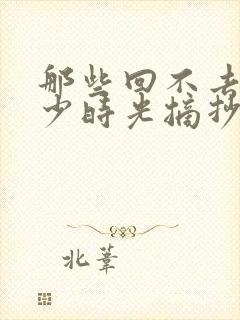 那些回不去
少时光摘抄
北葦